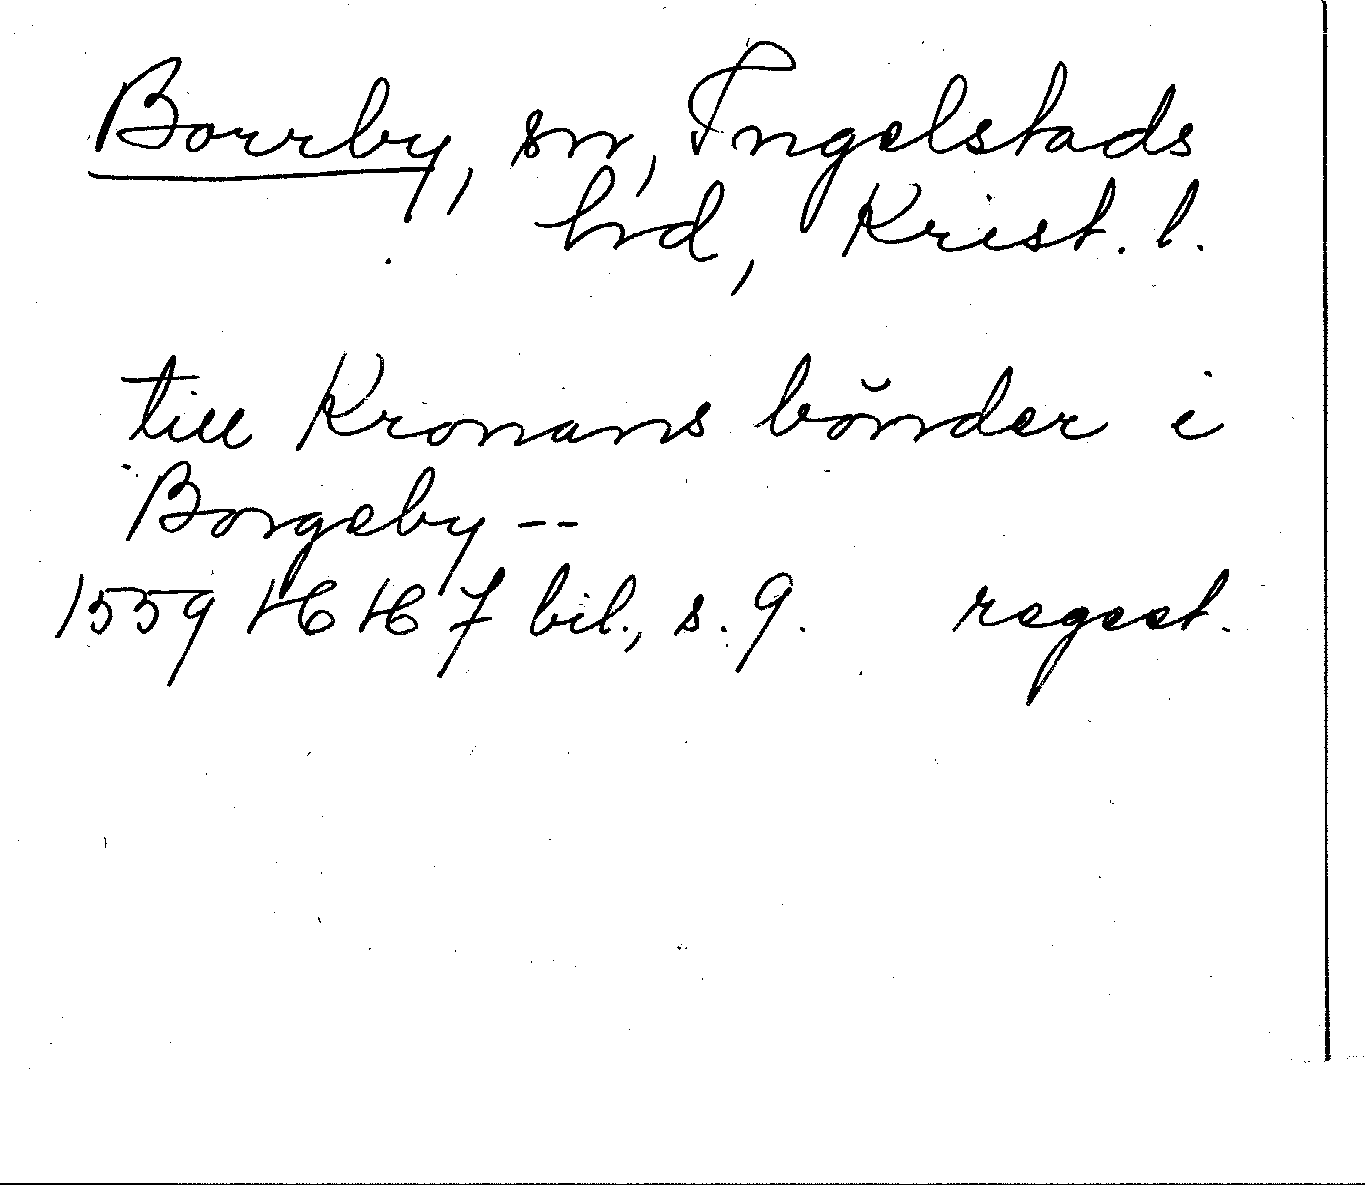 Borrby, sn, Ingelstads
hrd, Krist. l.
till Kronans bönder i
Borgeby --
1559 HH 7 bil., s. 9. regest.